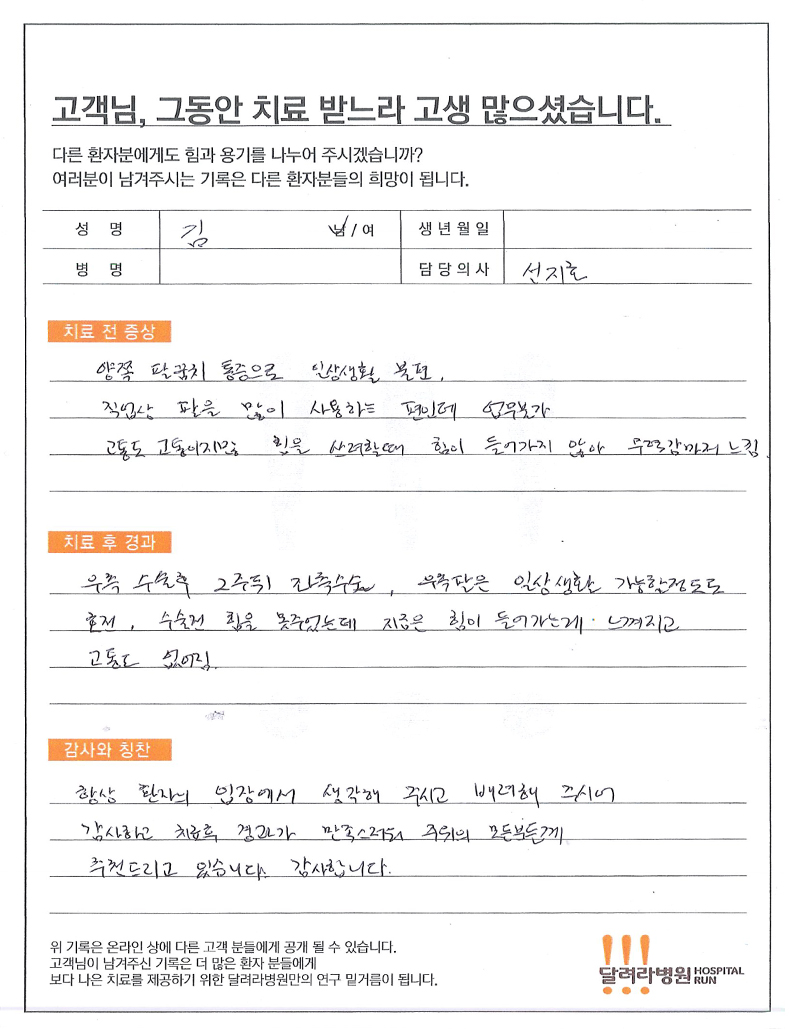 고객님, 그동안 치료 받느라 고생 많으셨습니다.
다른 환자분에게도 힘과 용기를 나누어 주시겠습니까?
여러분이 남겨주시는 기록은 다른 환자분들의 희망이 됩니다.
성 명 김 남 / 여 생년월일
병 명 담당의사 선지호
치료 전 증상
양쪽 팔굼치 통증으로 일상생활 불편,
직업상 팔을 많이 사용하는 편인데 업무불가
고통도 고통이지만 힘을 쓰려할때 힘이 들어가지 않아 무력감마저 느낌.
치료 후 경과
우측 수술후 2주뒤 좌측수술, 우측팔은 일상생활은 가능할정도로
호전, 수술전 힘을 못주었는데 지금은 힘이 들어가는게 느껴지고
고통도 없어짐.
감사와 칭찬
항상 환자의 입장에서 생각해 주시고 배려해 주시어
감사하고 치료후 경과가 만족스러워 주위의 모든분들께
추천드리고 있습니다. 감사합니다.
위 기록은 온라인 상에 다른 고객 분들에게 공개 될 수 있습니다.
고객님이 남겨주신 기록은 더 많은 환자 분들에게
보다 나은 치료를 제공하기 위한 달려라병원만의 연구 밑거름이 됩니다.
달려라병원 HOSPITAL RUN